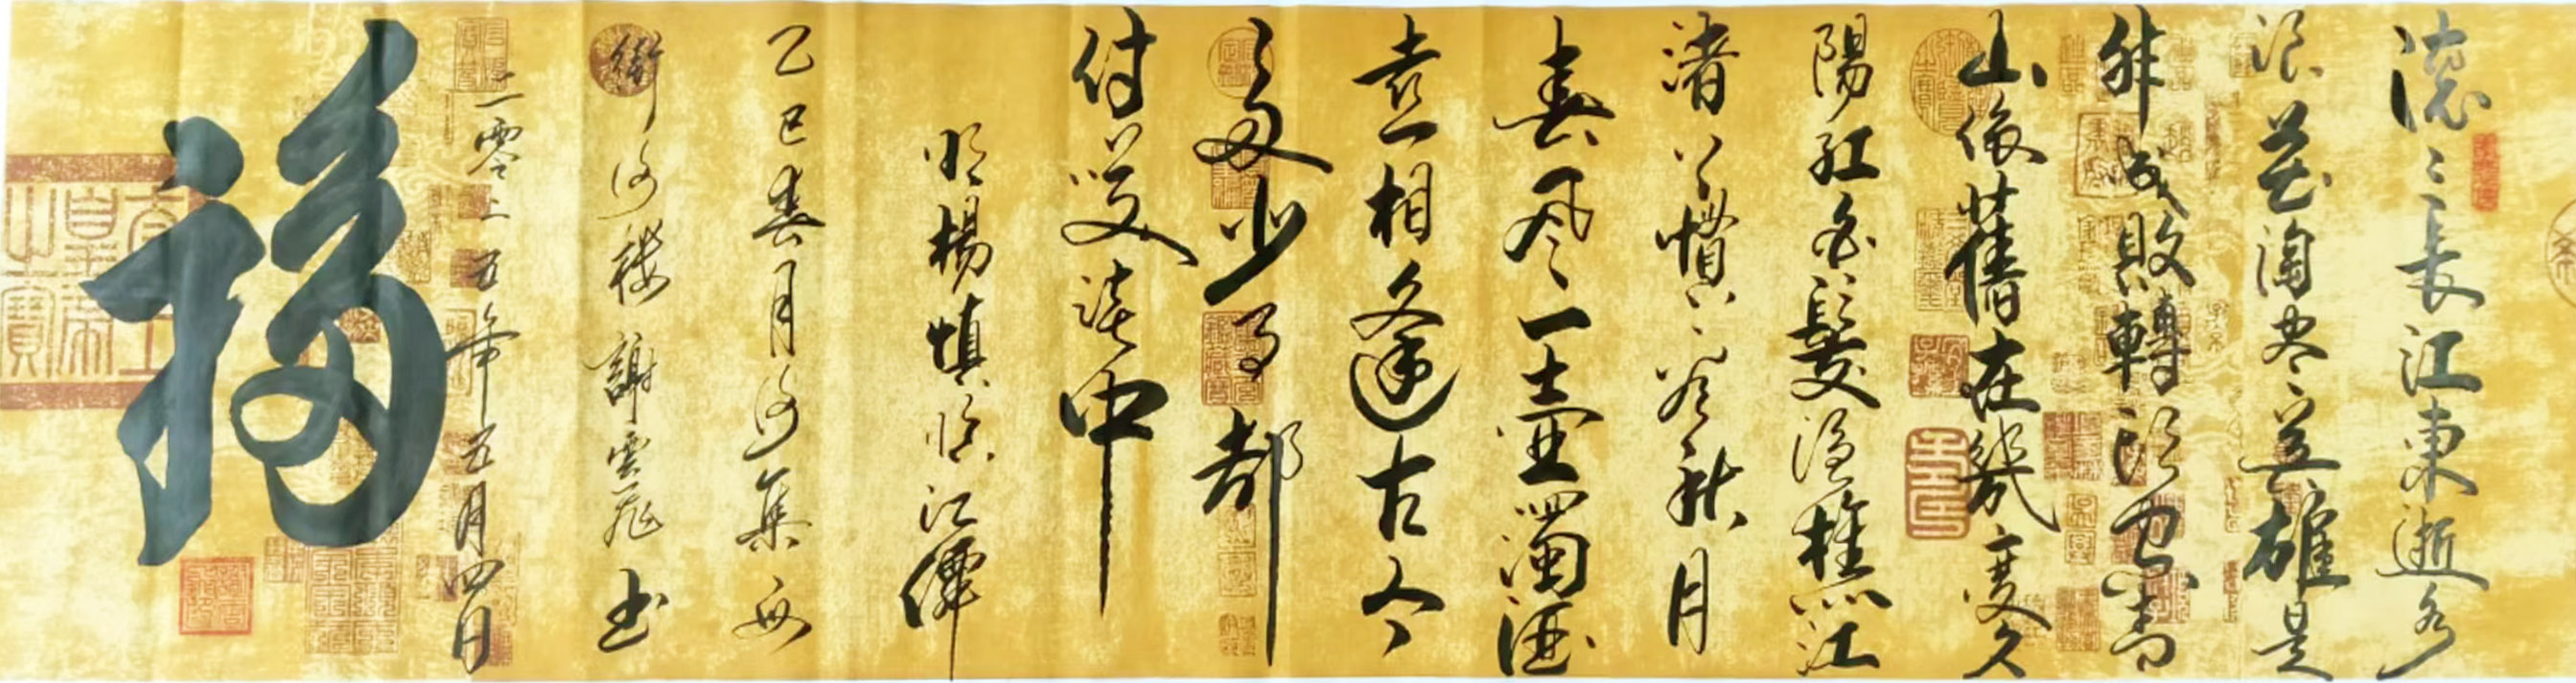 滚〻長江東逝水
浪花淘尽英雄是
非成敗轉頭空青
山依舊在幾度夕
陽紅白髮漁樵江
渚上慣看秋月
春風一壺濁酒
喜相逢古今
多少事都
付笑談中
明楊慎临江僊
乙巳春月於集安
謝雲飛书
二零二五年五月四日
福